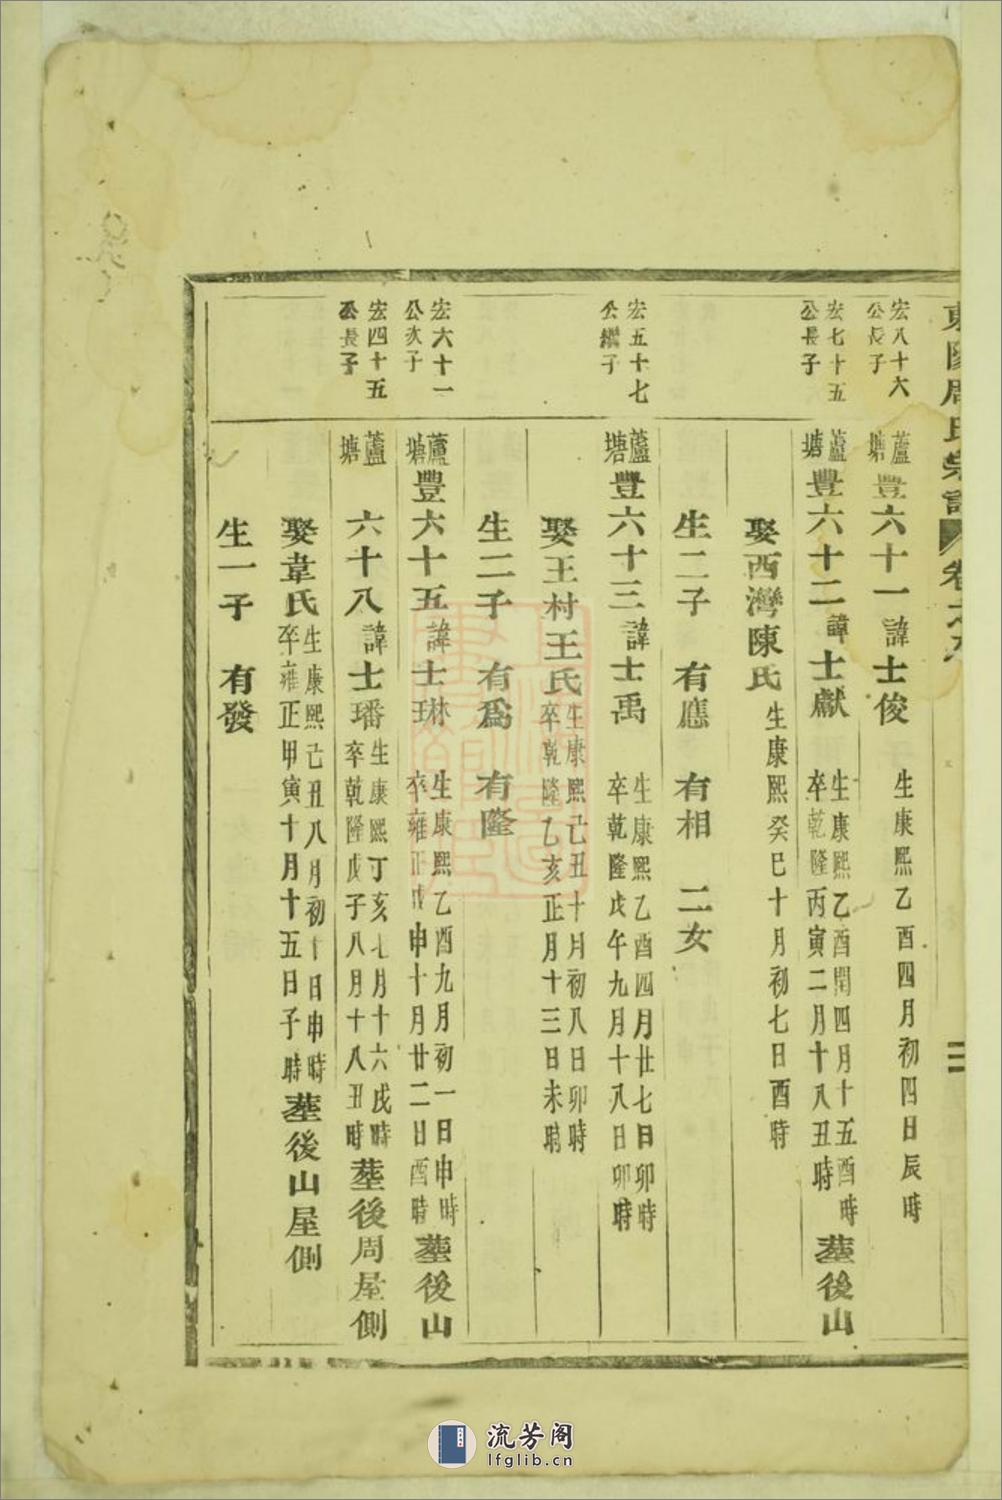 東陽周氏宗譜 卷之九
宏八十六
公長子
蘆塘豐六十一諱士俊 生康熙乙酉四月初四日辰時
宏七十五
公長子
蘆塘豐六十二諱士獻 生康熙乙酉閏四月十五酉時 卒乾隆丙寅二月十八丑時 塟後山
娶西灣陳氏 生康熙癸巳十月初七日酉時
生二子 有應 有相 二女
宏五十七
公繼子
蘆塘豐六十三諱士禹 生康熙乙酉四月廿七日卯時 卒乾隆戊午九月十八日卯時
娶王村王氏 生康熙己丑十月初八日卯時 卒乾隆乙亥正月十三日未時
生二子 有爲 有隆
宏六十一
公次子
蘆塘豐六十五諱士琳 生康熙乙酉九月初一日申時 卒雍正戊申十月廿二日酉時 塟後山
宏四十五
公長子
蘆塘 六十八諱士璠 生康熙丁亥七月十六戌時 卒乾隆戊子八月十八丑時 塟後周屋側
娶韋氏 生康熙己丑八月初十日申時 卒雍正甲寅十月十五日子時 塟後山屋側
生一子 有發
流芳阁
lfglib.cn